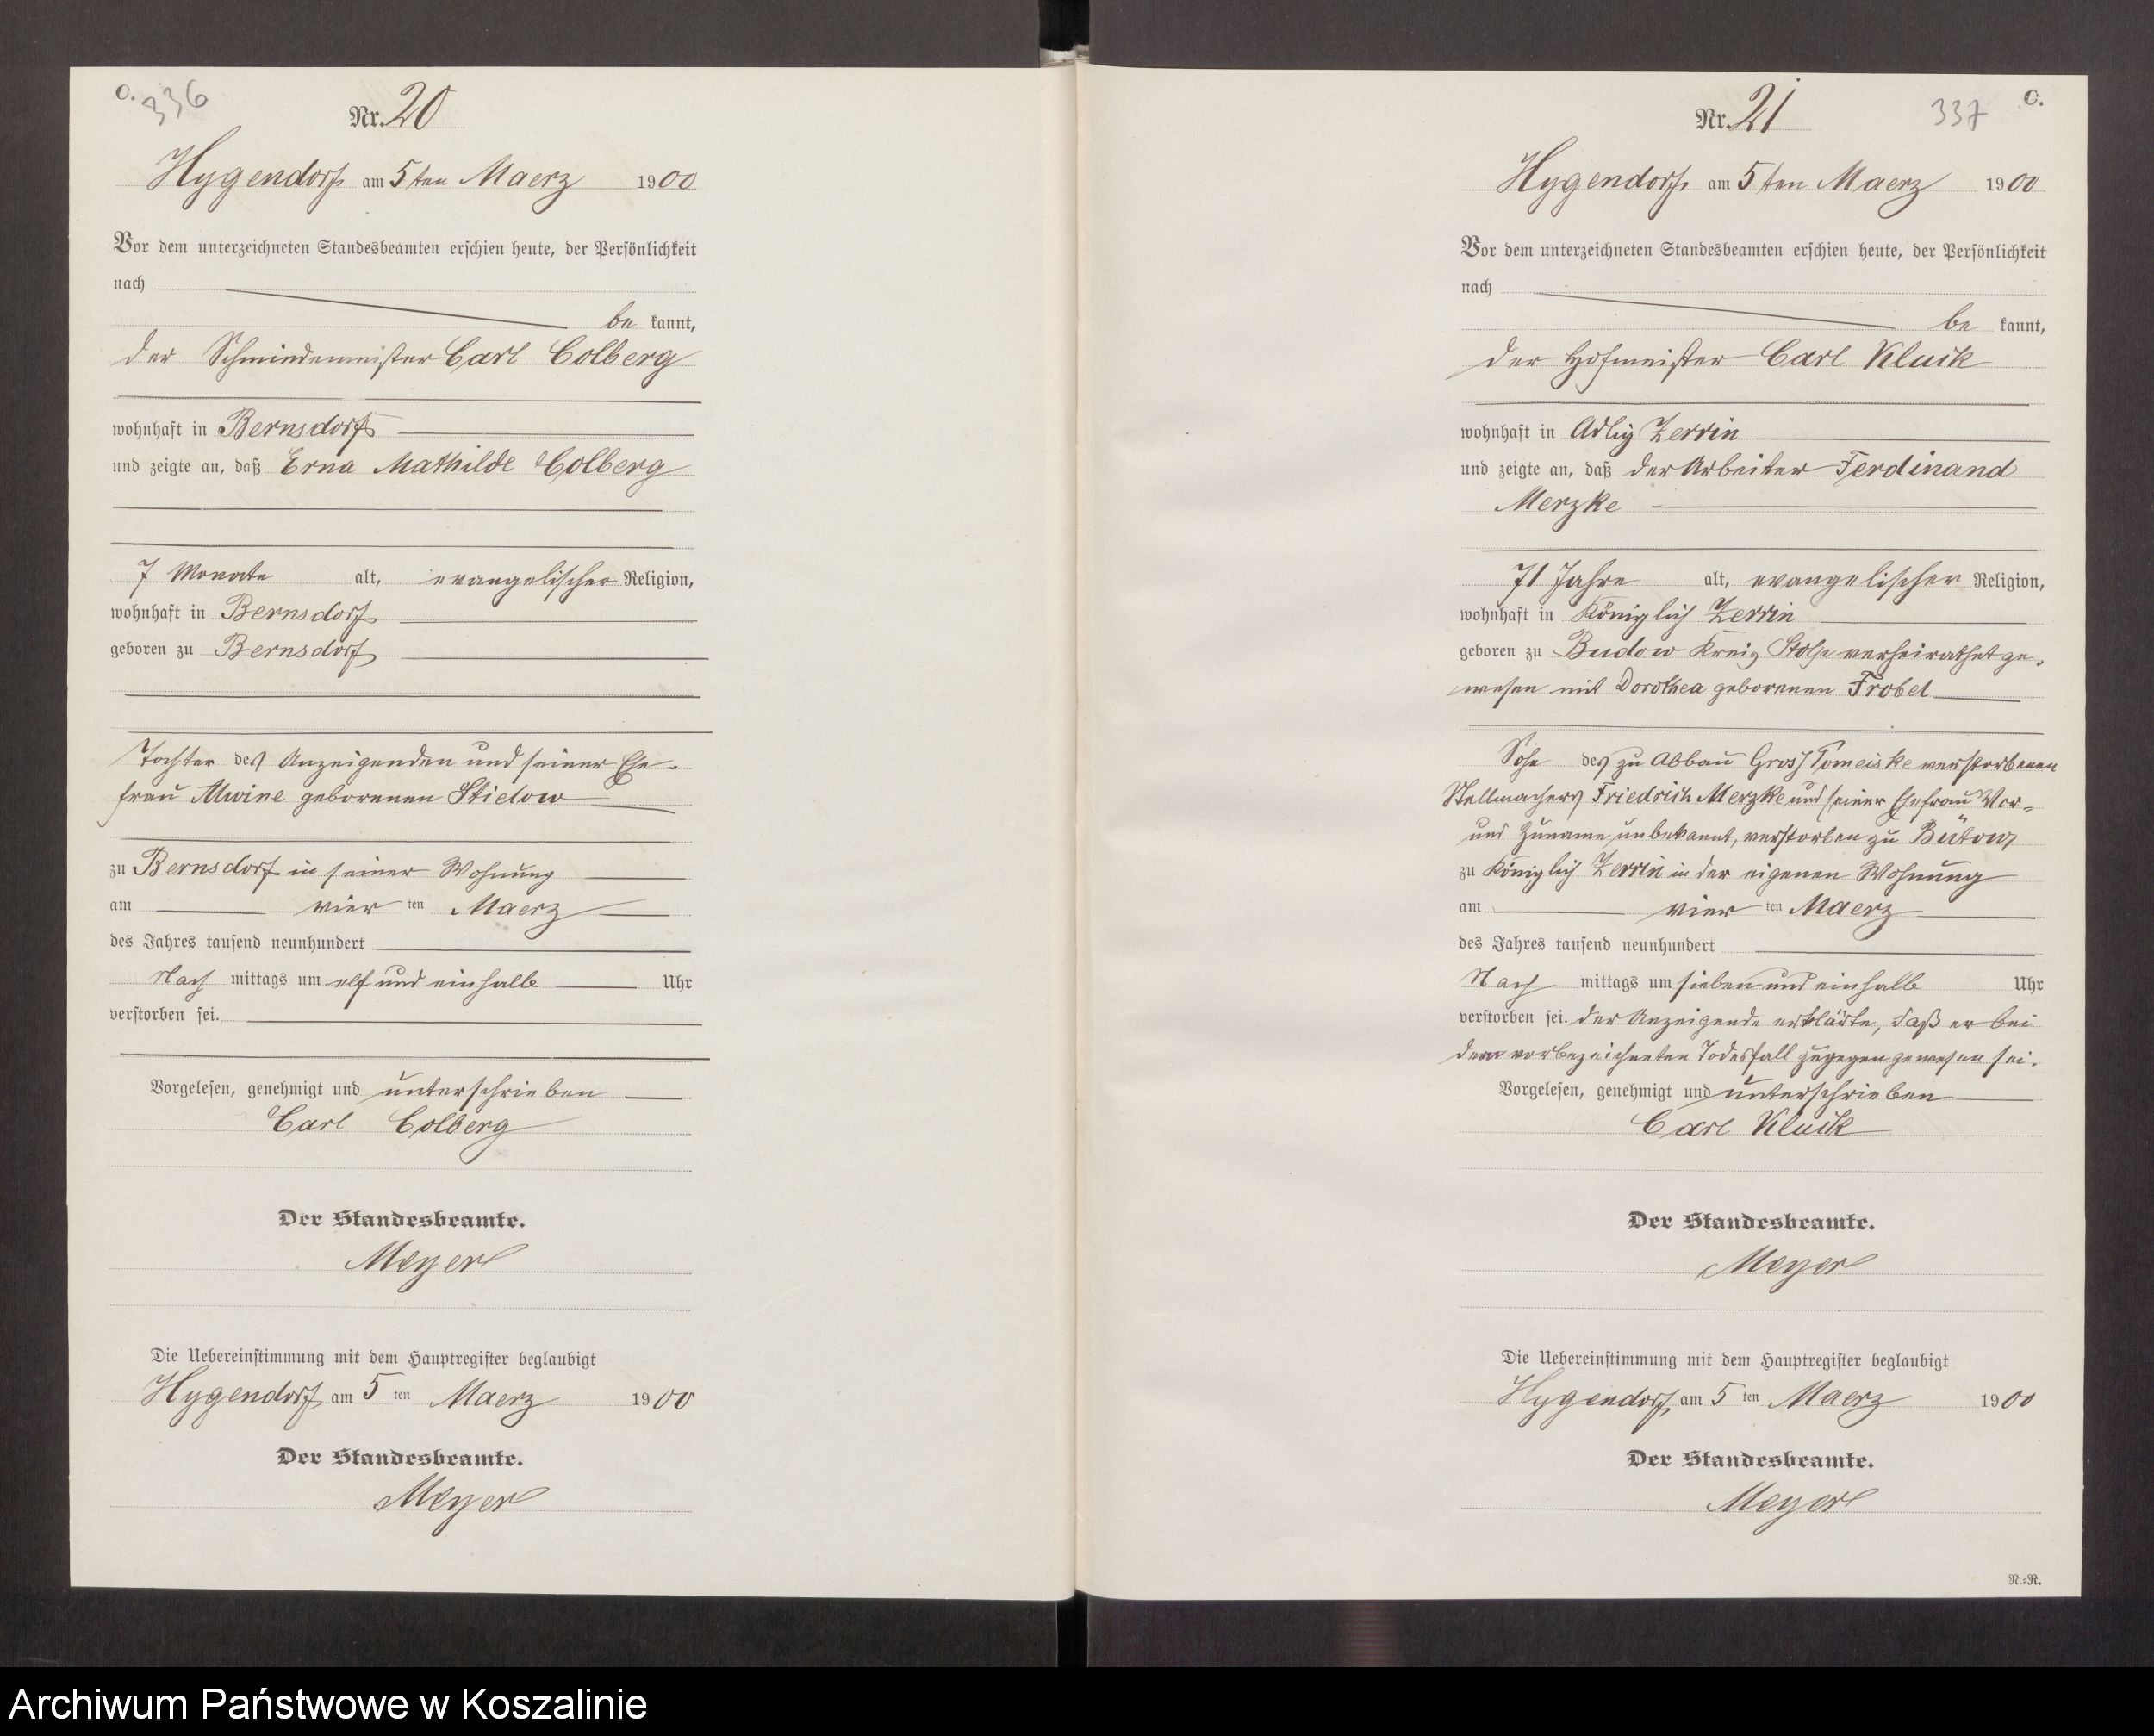 C. 336
Nr. 20
Hygendorf am 5ten Maerz 1900
Vor dem unterzeichneten Standesbeamten erschien heute, der Persönlichkeit
nach
be kannt,
der Schmiedemeister Carl Colberg
wohnhaft in Bernsdorf
und zeigte an, daß Erna Mathilde Colberg
7 Monate alt, evangelischer Religion,
wohnhaft in Bernsdorf
geboren zu Bernsdorf
Tochter des Anzeigenden und seiner Ehe-
frau Alwine geborenen Stielow
zu Bernsdorf in seiner Wohnung
am vier ten Maerz
des Jahres tausend neunhundert
Nach mittags um elf und einhalb Uhr
verstorben sei.
Vorgelesen, genehmigt und unterschrieben
Carl Colberg
Der Standesbeamte.
Meyer
Die Uebereinstimmung mit dem Hauptregister beglaubigt
Hygendorf am 5 ten Maerz 1900
Der Standesbeamte.
Meyer
337 C.
Nr. 21
Hygendorf am 5ten Maerz 1900
Vor dem unterzeichneten Standesbeamten erschien heute, der Persönlichkeit
nach
be kannt,
der Hofmeister Carl Kluck
wohnhaft in Adlig Zerrin
und zeigte an, daß der Arbeiter Ferdinand
Merzke
71 Jahre alt, evangelischer Religion,
wohnhaft in Königlich Zerrin
geboren zu Budow Kreis Stolp verheirathet ge-
wesen mit Dorothea geborenen Frobel
Sohn des zu Abbau Gross Pomeiske verstorbenen
Stellmachers Friedrich Merzke und seiner Ehefrau Vor-
und Zuname unbekannt, verstorben zu Bütow,
zu Königlich Zerrin in der eigenen Wohnung
am vier ten Maerz
des Jahres tausend neunhundert
Nach mittags um sieben und einhalb Uhr
verstorben sei. Der Anzeigende erklärte, daß er bei
dem vorbezeichneten Todesfall zugegen gewesen sei.
Vorgelesen, genehmigt und unterschrieben
Carl Kluck
Der Standesbeamte.
Meyer
Die Uebereinstimmung mit dem Hauptregister beglaubigt
Hygendorf am 5 ten Maerz 1900
Der Standesbeamte.
Meyer
N.=R.
Archiwum Państwowe w Koszalinie